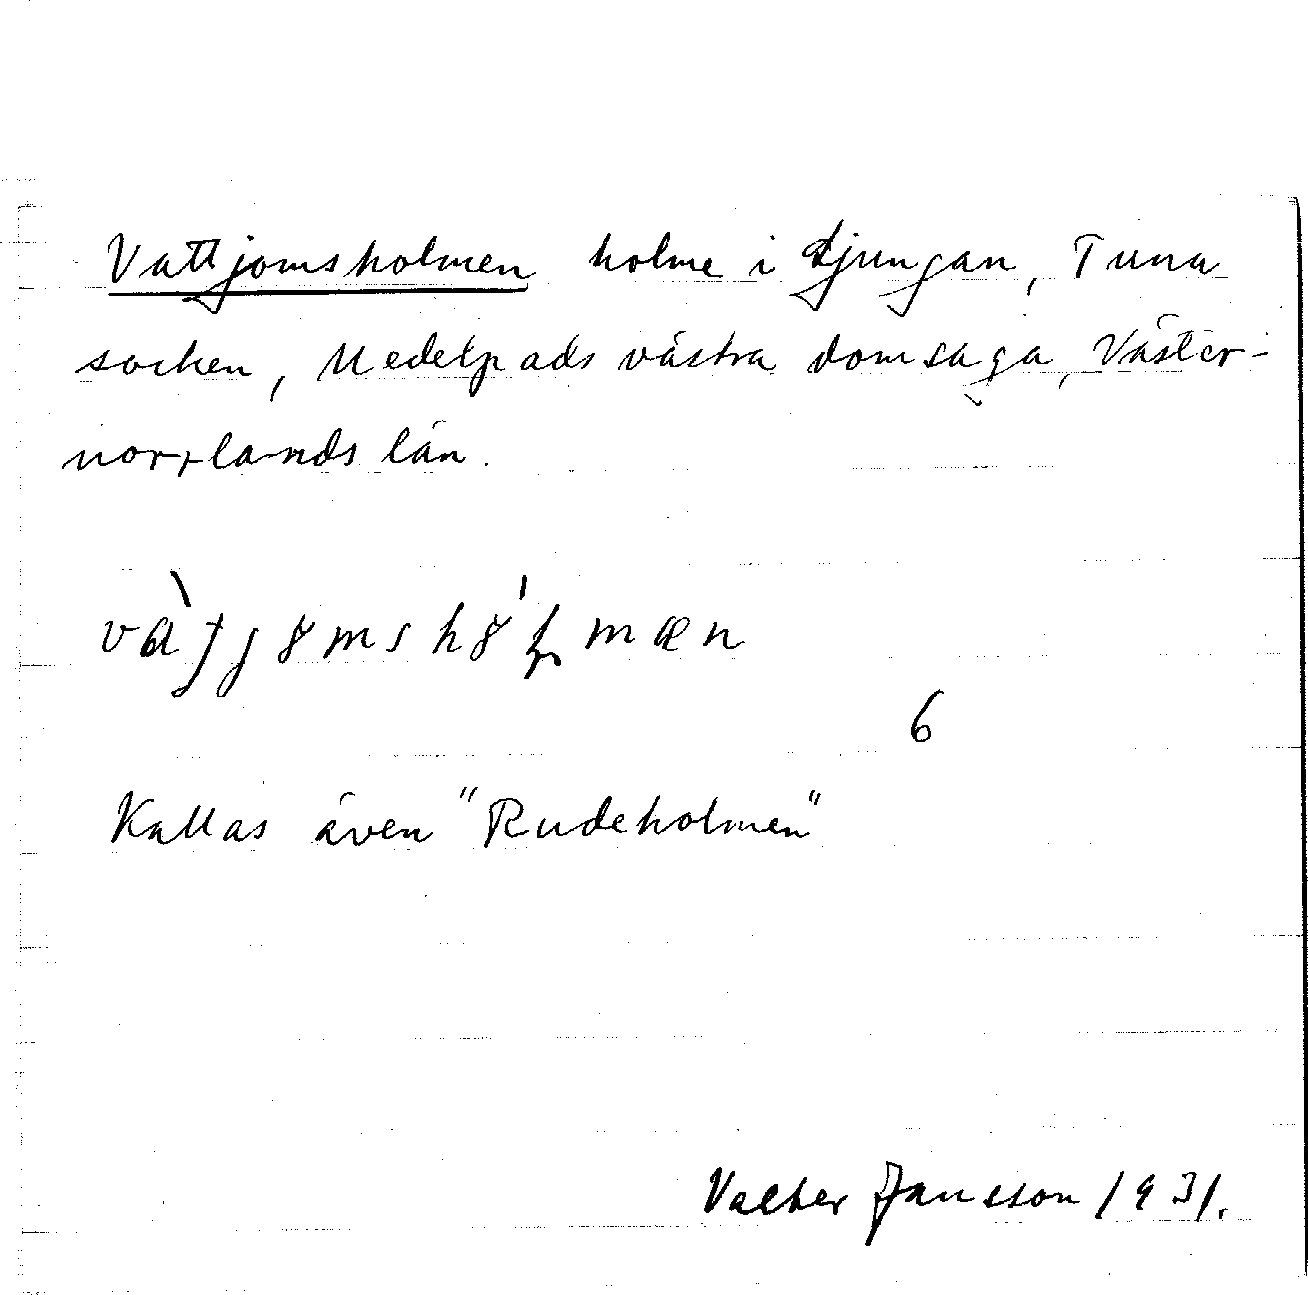 Vattjomsholmen holme i Ljungan, Tuna
socken, Medelpads västra domsaga, Väster-
norrlands län.
6
Kallas även "Rudeholmen"
Valter Jansson 1931.